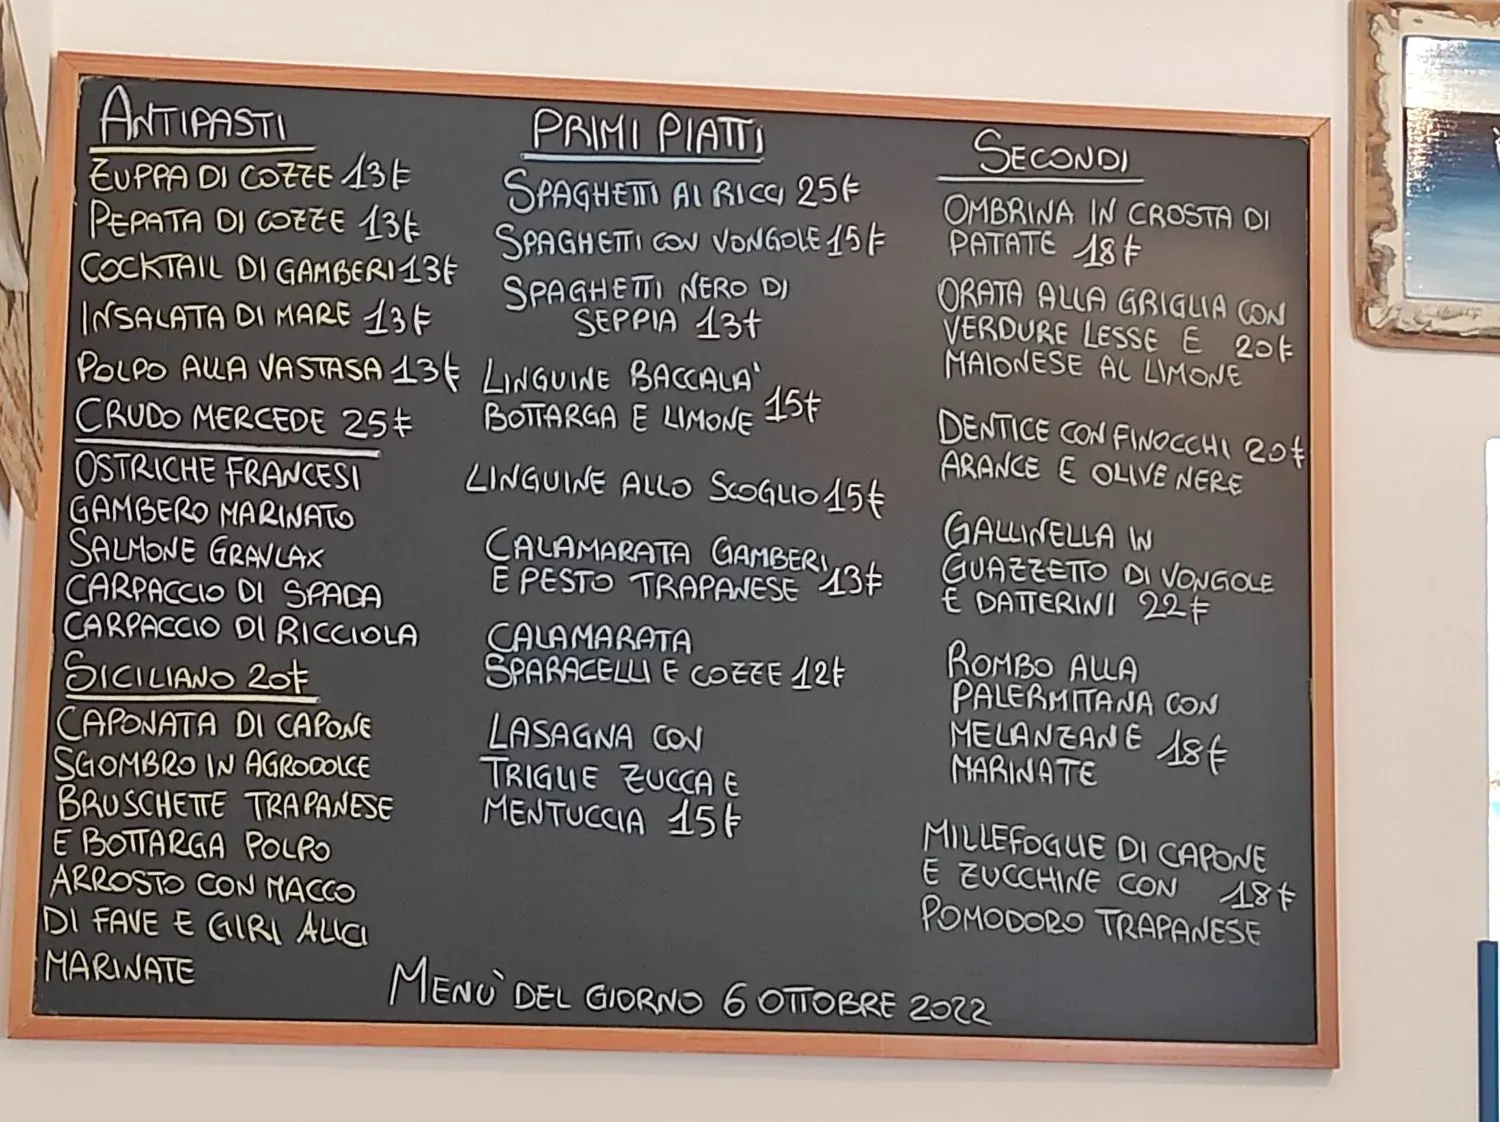 ANTIPASTI
ZUPPA DI COZZE 13€
PEPATA DI COZZE 13€
COCKTAIL DI GAMBERI 13€
INSALATA DI MARE 13€
POLPO ALLA VASTASA 13€
CRUDO MERCEDE 25€
OSTRICHE FRANCESI
GAMBERO MARINATO
SALMONE GRAVLAX
CARPACCIO DI SPADA
CARPACCIO DI RICCIOLA
SICILIANO 20€
CAPONATA DI CAPONE
SGOMBRO IN AGRODOLCE
BRUSCHETTE TRAPANESE
E BOTTARGA POLPO
ARROSTO CON MACCO
DI FAVE E GIRI ALICI
MARINATE
PRIMI PIATTI
SPAGHETTI AI RICCI 25€
SPAGHETTI CON VONGOLE 15€
SPAGHETTI NERO DI
SEPPIA 13€
LINGUINE BACCALA'
BOTTARGA E LIMONE 15€
LINGUINE ALLO SCOGLIO 15€
CALAMARATA GAMBERI
E PESTO TRAPANESE 13€
CALAMARATA
SPARACELLI E COZZE 12€
LASAGNA CON
TRIGLIE ZUCCA E
MENTUCCIA 15€
SECONDI
OMBRINA IN CROSTA DI
PATATE 18€
ORATA ALLA GRIGLIA CON
VERDURE LESSE E 20€
MAIONESE AL LIMONE
DENTICE CON FINOCCHI 20€
ARANCE E OLIVE NERE
GALLINELLA IN
GUAZZETTO DI VONGOLE
E DATTERINI 22€
ROMBO ALLA
PALERMITANA CON
MELANZANE 18€
MARINATE
MILLEFOGLIE DI CAPONE
E ZUCCHINE CON 18€
POMODORO TRAPANESE
MENÙ DEL GIORNO 6 OTTOBRE 2022